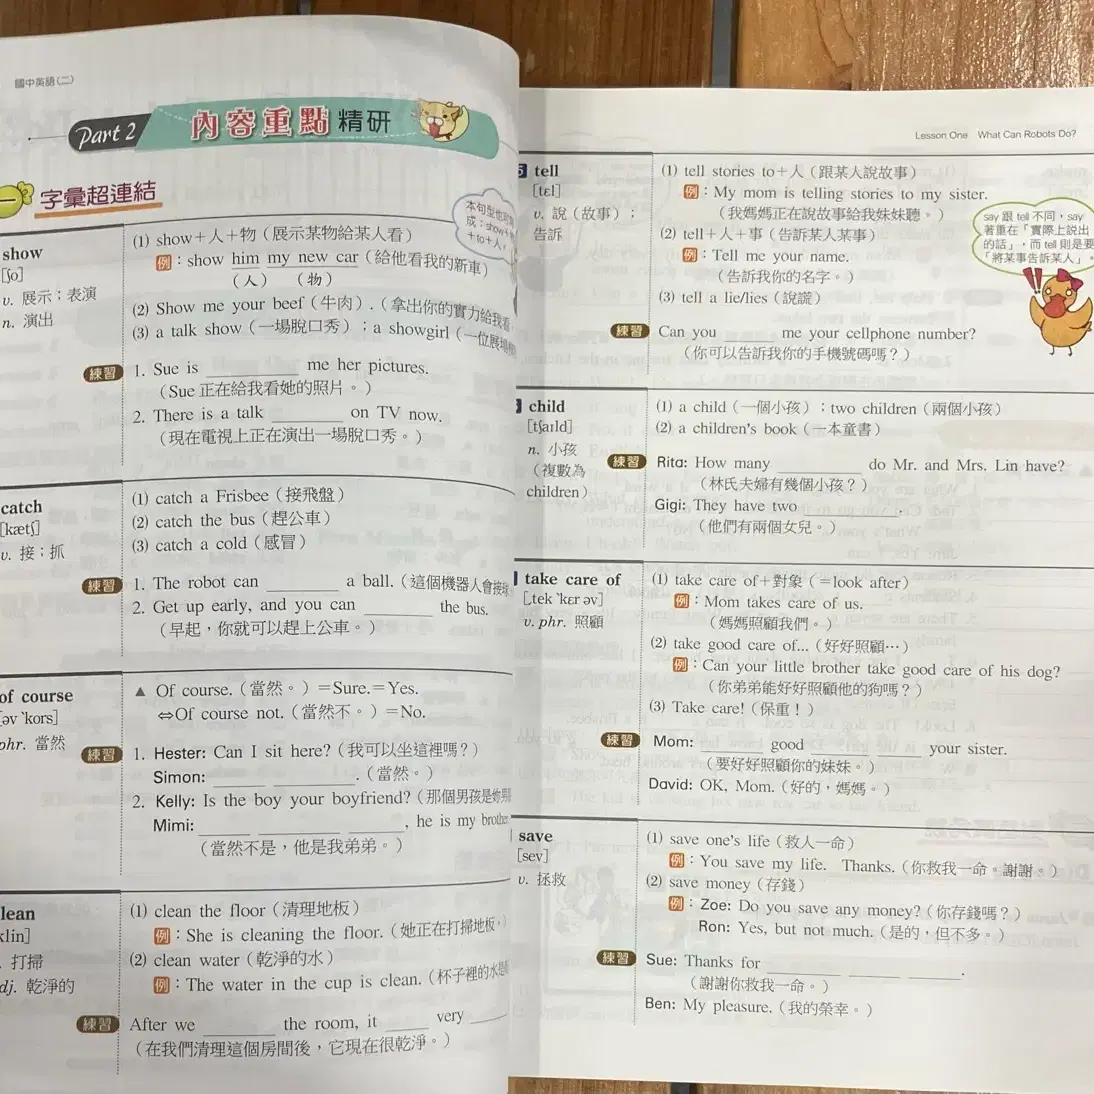 國中英語(二)
Part 2 內容重點 精研
一 字彙超連結
show
[ʃo]
v. 展示；表演
n. 演出
(1) show＋人＋物（展示某物給某人看）
例：show him my new car（給他看我的新車）
（人）（物）
(2) Show me your beef（牛肉）.（拿出你的實力給我看
(3) a talk show（一場脫口秀）；a showgirl（一位展場
本句型也可
成：show＋
＋to＋人。
練習 1. Sue is ________ me her pictures.
（Sue 正在給我看她的照片。）
2. There is a talk ________ on TV now.
（現在電視上正在演出一場脫口秀。）
catch
[kætʃ]
v. 接；抓
(1) catch a Frisbee（接飛盤）
(2) catch the bus（趕公車）
(3) catch a cold（感冒）
練習 1. The robot can ________ a ball.（這個機器人會接球
2. Get up early, and you can ________ the bus.
（早起，你就可以趕上公車。）
of course
[əv ˋkors]
phr. 當然
▲ Of course.（當然。）＝Sure.＝Yes.
⇔Of course not.（當然不。）＝No.
練習 1. Hester: Can I sit here?（我可以坐這裡嗎？）
Simon: ______ ________.（當然。）
2. Kelly: Is the boy your boyfriend?（那個男孩是妳男
Mimi: ______ ________ ______, he is my brother
（當然不是，他是我弟弟。）
lean
klin]
. 打掃
dj. 乾淨的
(1) clean the floor（清理地板）
例：She is cleaning the floor.（她正在打掃地板。）
(2) clean water（乾淨的水）
例：The water in the cup is clean.（杯子裡的水
練習 After we ________ the room, it ____ very ____
（在我們清理這個房間後，它現在很乾淨。）
Lesson One What Can Robots Do?
5 tell
[tɛl]
v. 說（故事）；
告訴
(1) tell stories to＋人（跟某人說故事）
例：My mom is telling stories to my sister.
（我媽媽正在說故事給我妹妹聽。）
(2) tell＋人＋事（告訴某人某事）
例：Tell me your name.
（告訴我你的名字。）
(3) tell a lie/lies（說謊）
say 跟 tell 不同，say
著重在「實際上說出
的話」，而 tell 則是要
「將某事告訴某人」。
練習 Can you ______ me your cellphone number?
（你可以告訴我你的手機號碼嗎？）
child
[tʃaɪld]
n. 小孩
（複數為
children）
(1) a child（一個小孩）；two children（兩個小孩）
(2) a children's book（一本童書）
練習 Rita: How many ________ do Mr. and Mrs. Lin have?
（林氏夫婦有幾個小孩？）
Gigi: They have two ________.
（他們有兩個女兒。）
take care of
[ˏtek ˋkɛr əv]
v. phr. 照顧
(1) take care of＋對象（＝look after）
例：Mom takes care of us.
（媽媽照顧我們。）
(2) take good care of...（好好照顧…）
例：Can your little brother take good care of his dog?
（你弟弟能好好照顧他的狗嗎？）
(3) Take care!（保重！）
練習 Mom: ______ good ______ ______ your sister.
（要好好照顧你的妹妹。）
David: OK, Mom.（好的，媽媽。）
save
[sev]
v. 拯救
(1) save one's life（救人一命）
例：You save my life. Thanks.（你救我一命。謝謝。）
(2) save money（存錢）
例：Zoe: Do you save any money?（你存錢嗎？）
Ron: Yes, but not much.（是的，但不多。）
練習 Sue: Thanks for ________ ______ ______.
（謝謝你救我一命。）
Ben: My pleasure.（我的榮幸。）